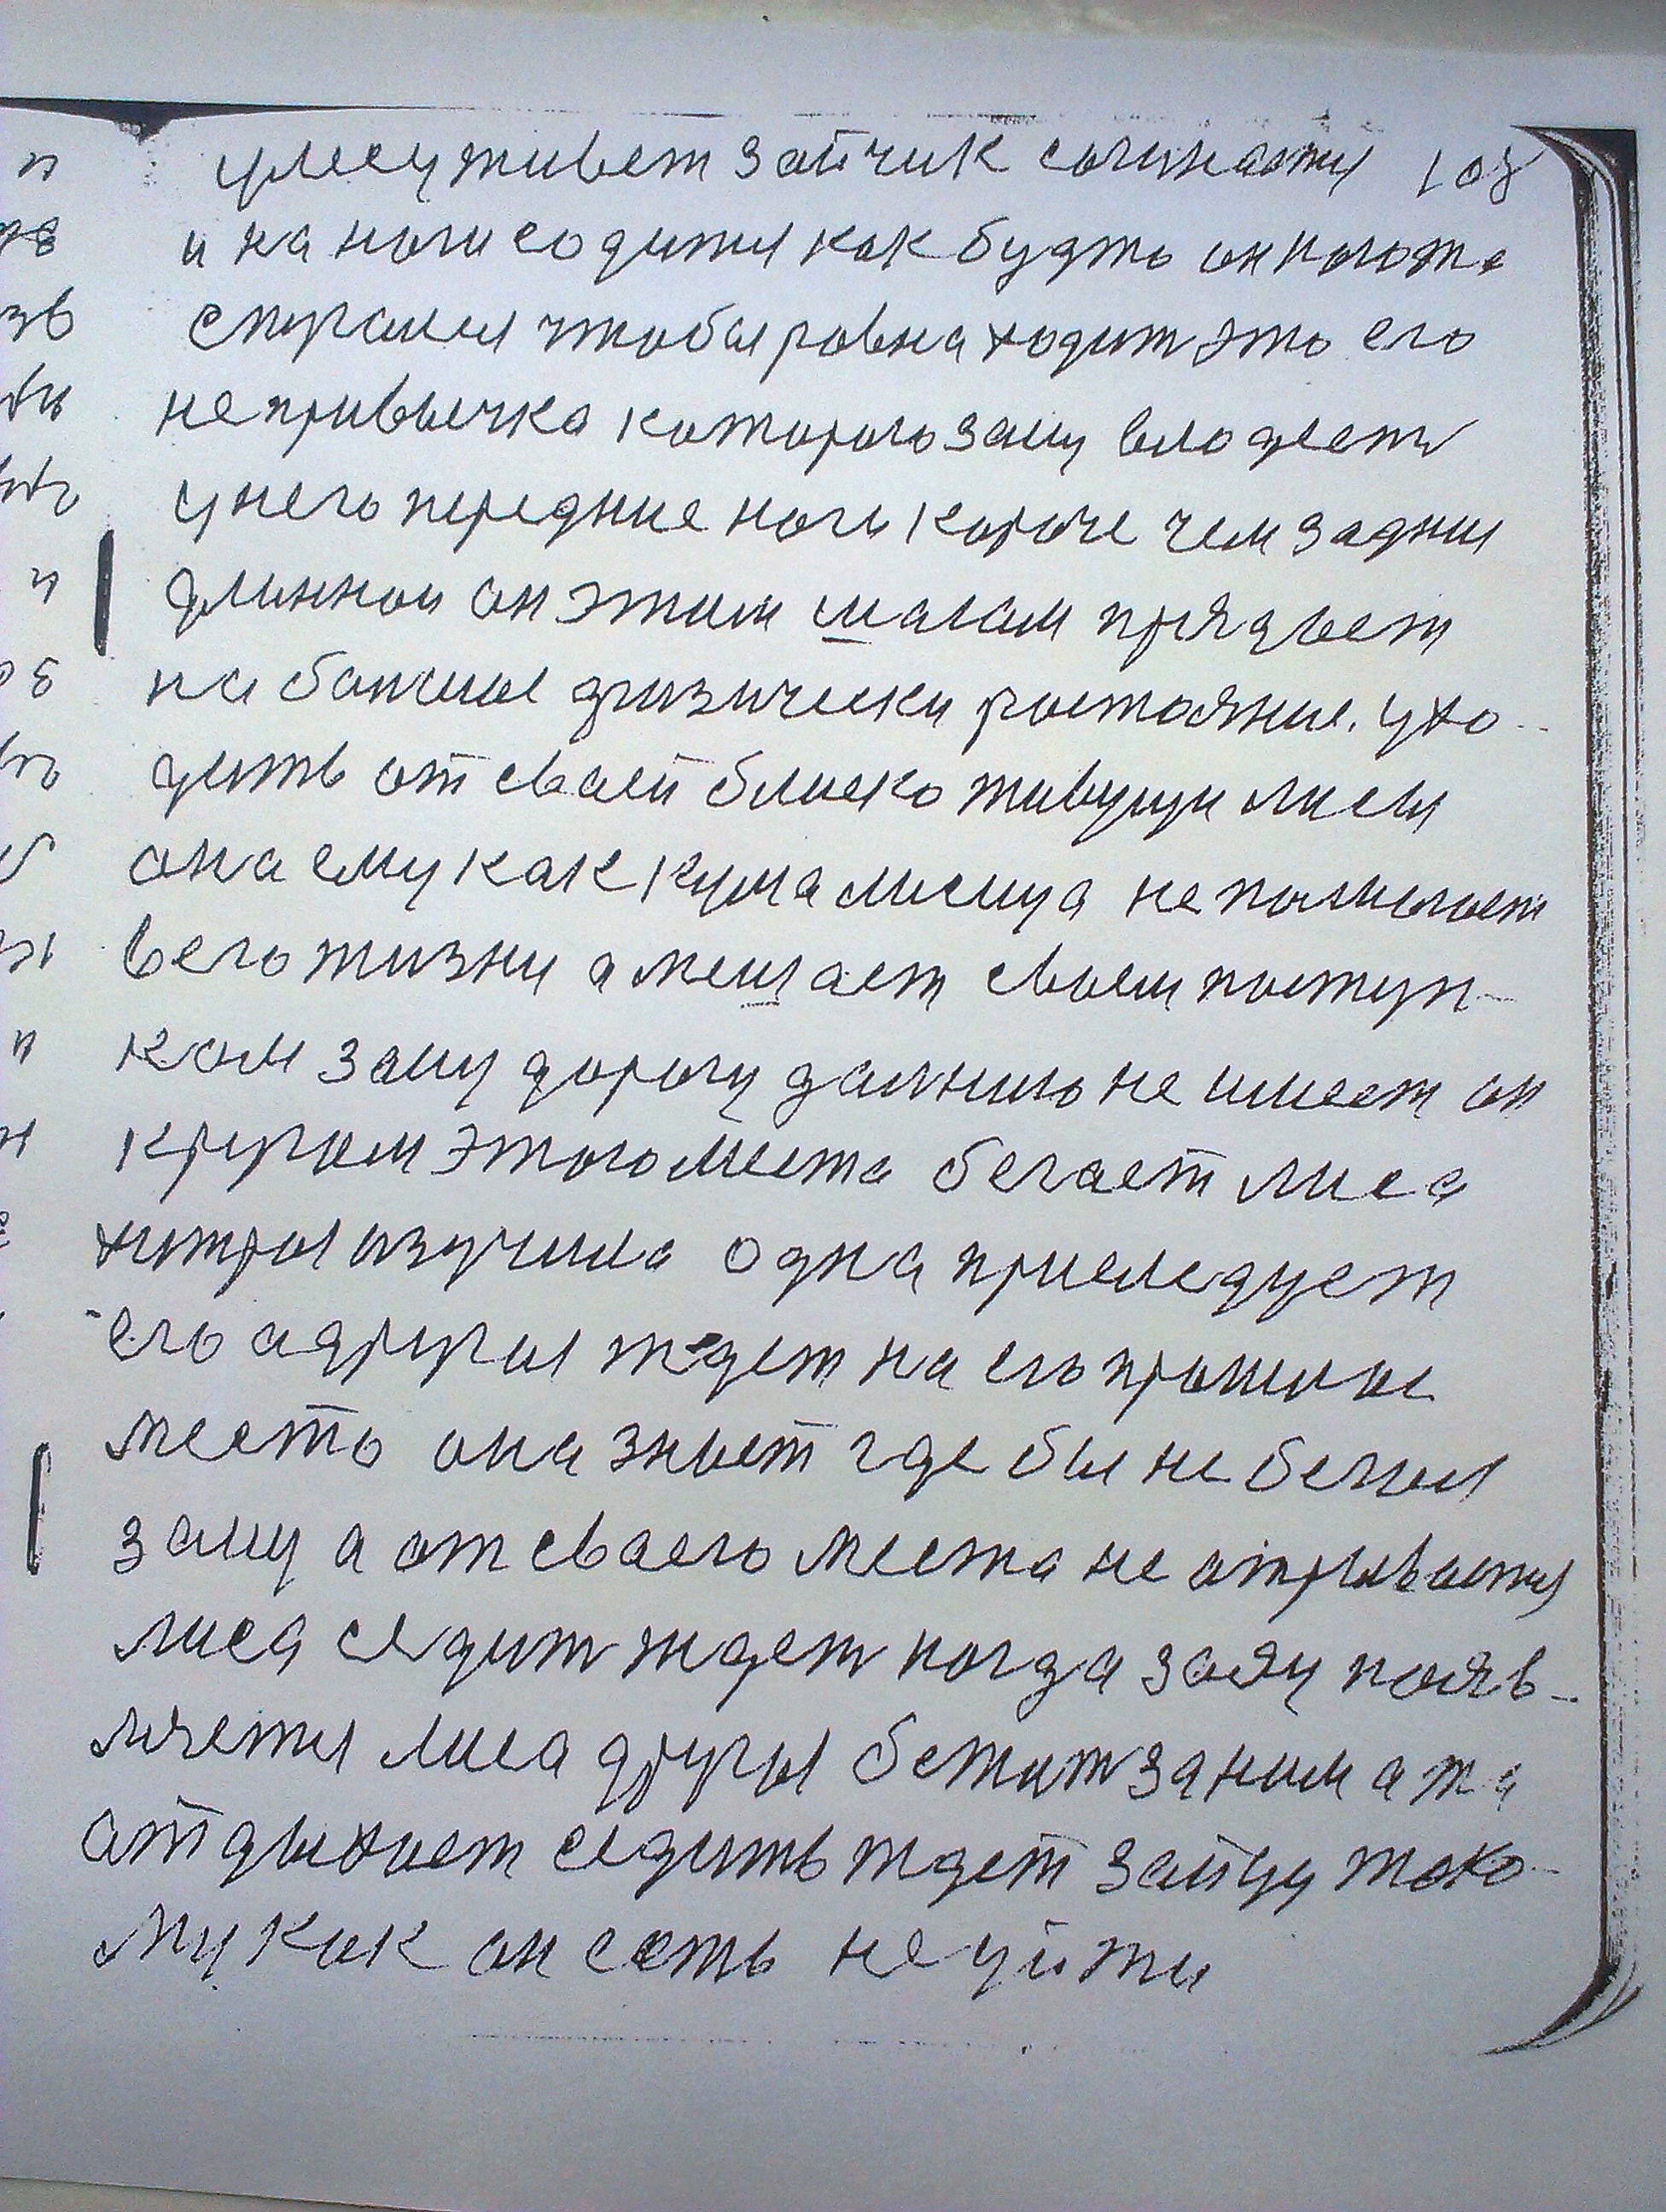 улесу живет зайчик сочинаяты 108
и на ноги содитыя как будто он кого та
спугался чтобы ровна ходит это его
не привычка которого заиц владеет
у него передние ноги короче чем задния
длиннои он этим шагам прядвет
на большие физически ростояние. ухо-
дить от сваей близко живущи лисы
она ему как кума лисица не помогает
в его жизни а мешает своем поступ-
кам заиц дорогу далнию не имеет он
кругом этого места бегает лиса
хитрыя изучила однаприследует
его а другия ждет на его прошлые
место она знает где бы не бегал
заиц а от сваего места не атрываетыя
лиса седит ждет когда заяц появ-
ляетыя лиса другыя бежит заним а та
атдыхает седить ждет зайцу тако-
му как он есть не уйти